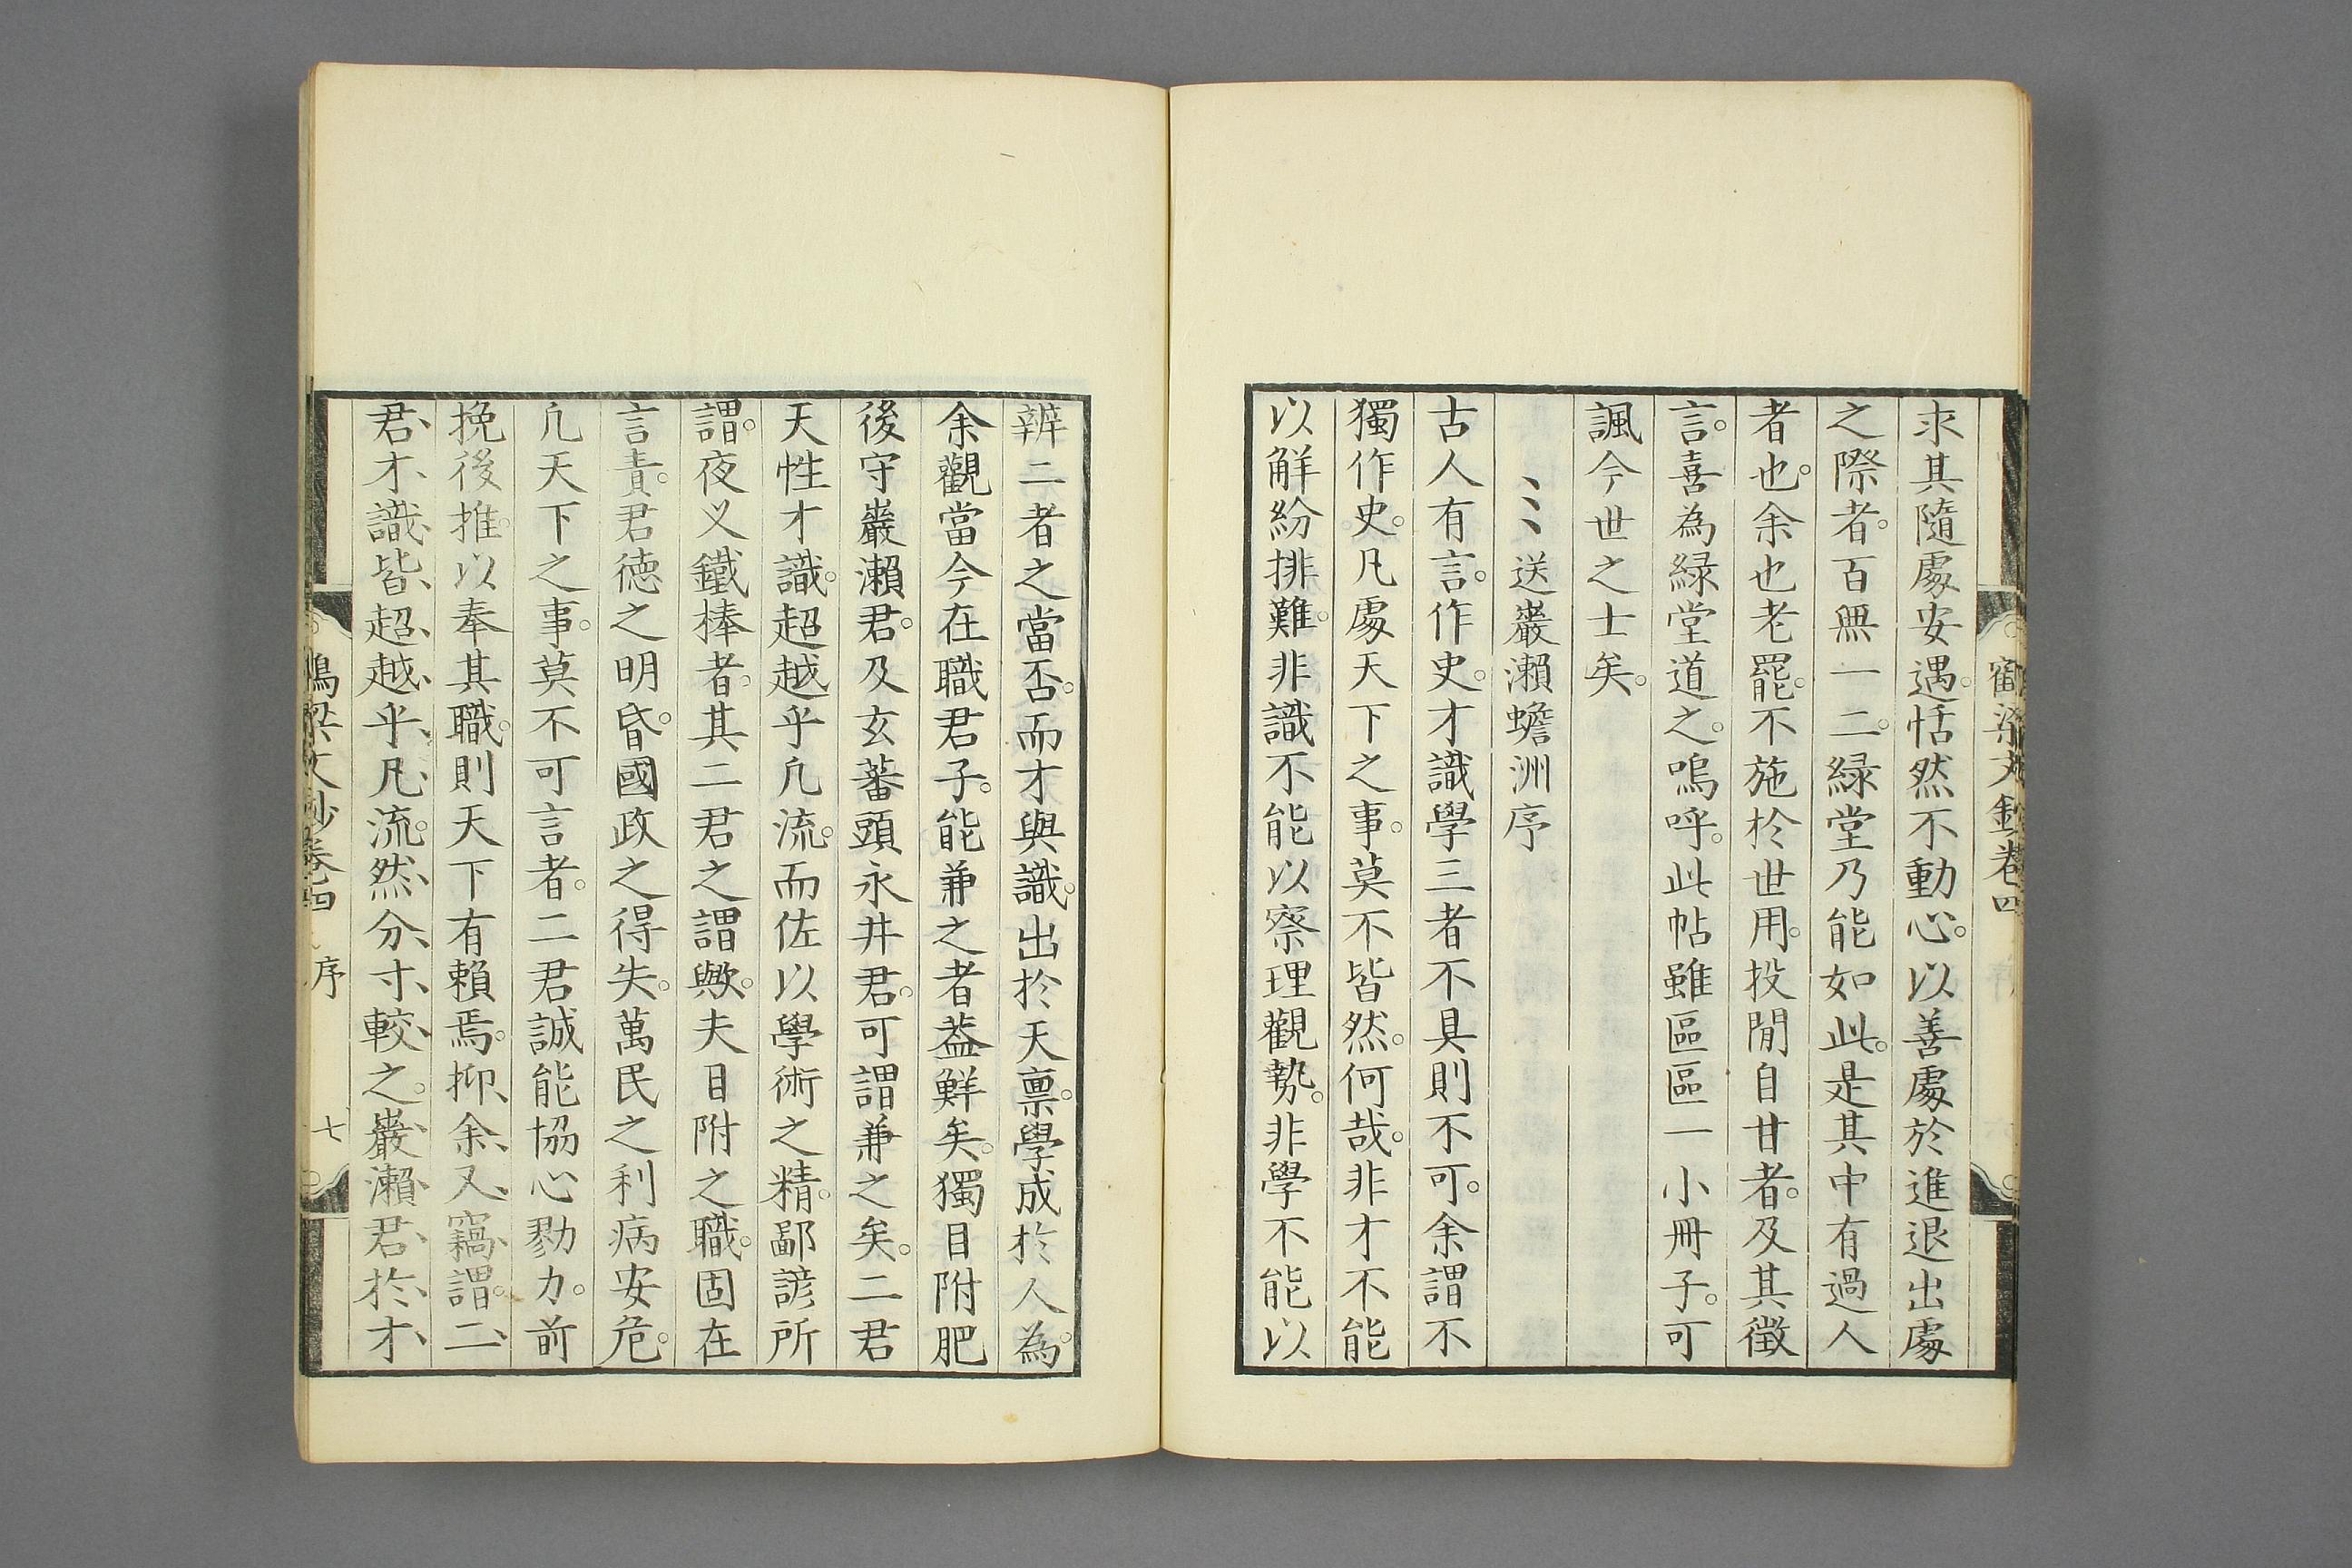 求其隨處安遇。恬然不動心。以善處於進退出處
之際者。百無一二。緑堂乃能如此。是其中有過人
者也。余也老罷。不施於世用。投閒自甘者。及其徵
言。喜為緑堂道之。嗚呼。此帖雖區區一小冊子。可
諷今世之士矣。
送巖瀨蟾洲序
古人有言。作史。才識學三者不具則不可。余謂不
獨作史。凡處天下之事。莫不皆然。何哉。非才不能
以解紛排難。非識不能以察理觀勢。非學不能以
辨二者之當否。而才與識。出於天禀。學成於人為。
余觀當今在職君子。能兼之者葢鮮矣。獨目附肥
後守巖瀨君。及玄蕃頭永井君。可謂兼之矣。二君
天性才識。超越乎凡流。而佐以學術之精。鄙諺所
謂。夜义鐵棒者。其二君之謂歟。夫目附之職。固在
言責。君徳之明昏。國政之得失。萬民之利病安危。
凡天下之事。莫不可言者。二君誠能恊心勠力。前
挽後推。以奉其職。則天下有賴焉。抑余又竊謂。二
君才識皆超越乎凡流。然分寸較之。巖瀨君於才
文鈔卷四
序
七